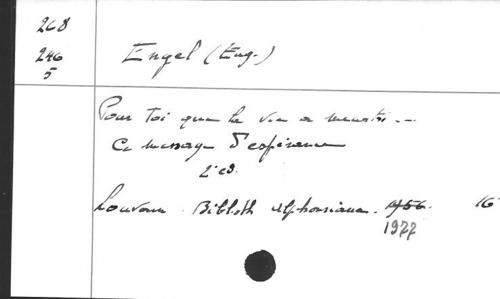 268
246
5
Engel (Eug.)
Pour toi que la vie a meurtri...
Ce message d'espérance
2e ed.
Louvain. Biblioth Alphonsiana. 1956. 16
1977